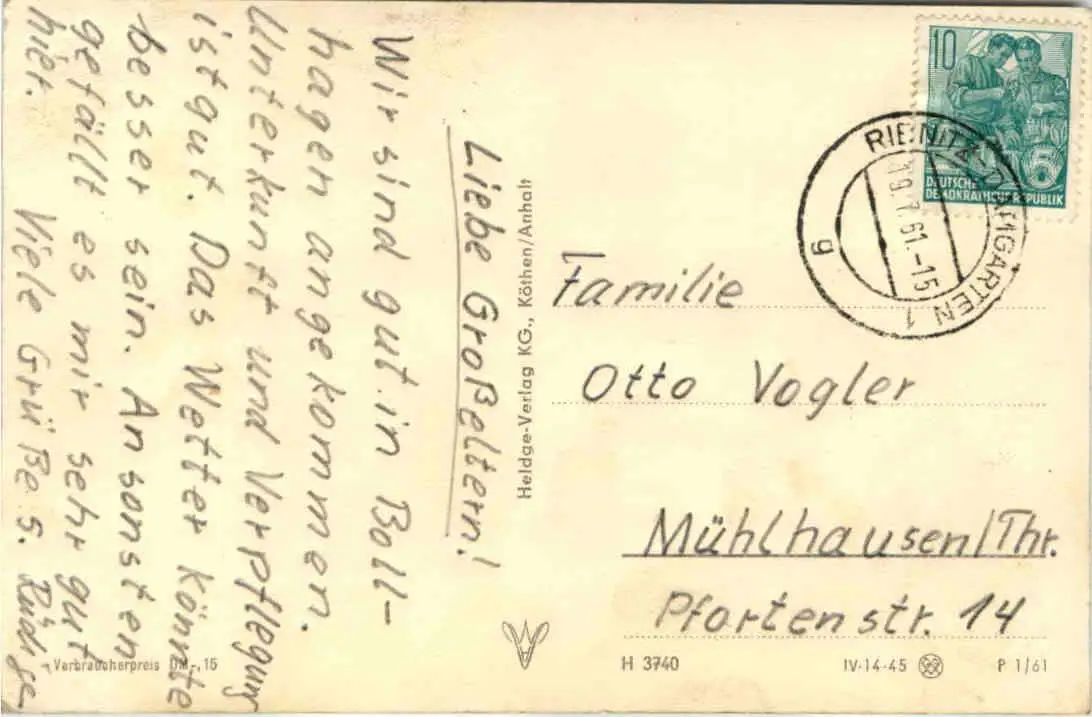 Liebe Großeltern!
Wir sind gut in Boll-
hagen angekommen.
Unterkunft und Verpflegung
ist gut. Das Wetter könnte
besser sein. Ansonsten
gefällt es mir sehr gut
hier. Viele Grüße s.
Heldge-Verlag KG., Köthen/Anhalt
10
DEUTSCHE
DEMOKRATISCHE REPUBLIK
RIBNITZ-DAMGARTEN 1
19.7.61.-15
g
Familie
Otto Vogler
Mühlhausen/Thr.
Pfortenstr. 14
Verbraucherpreis DM -,15
H 3740
IV-14-45
P 1/61